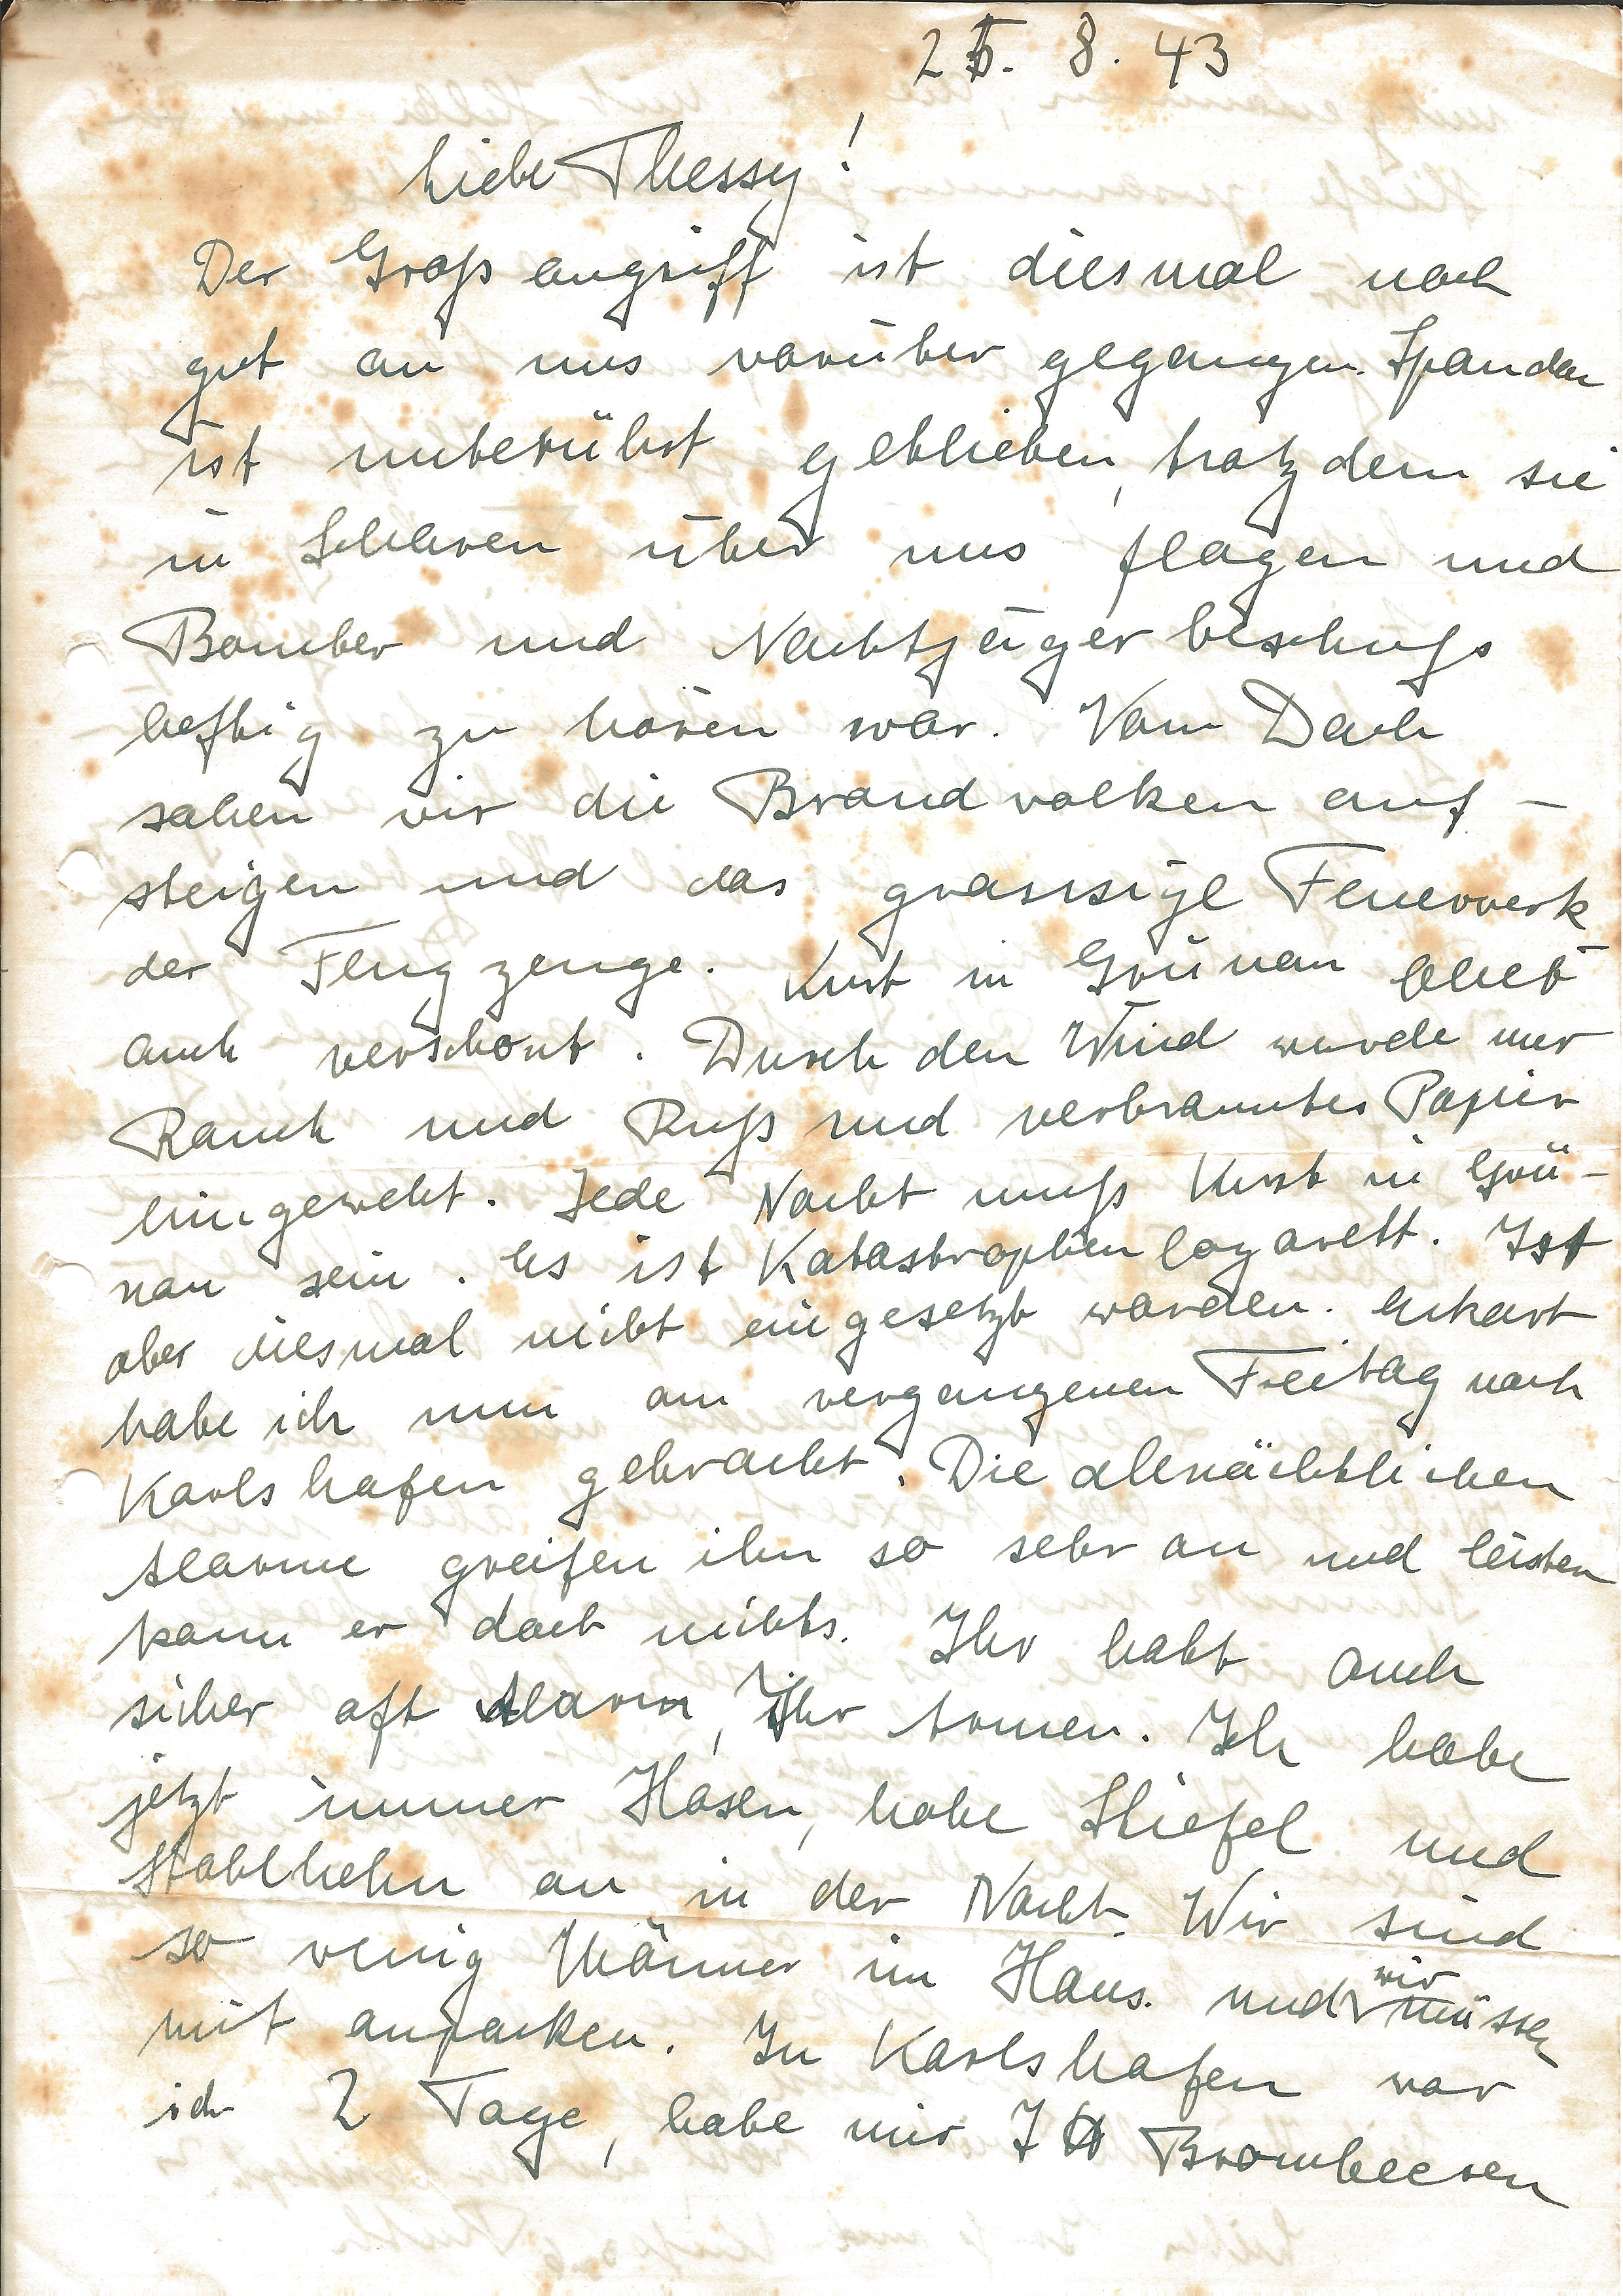 25. 8. 43
Liebe Thessy!
Der Großangriff ist diesmal noch
gut an uns vorüber gegangen. Spandau
ist unberührt geblieben, trotzdem sie
in Scharen über uns flogen und
Bomber und Nachtjägerbeschuß
heftig zu hören war. Vom Dach
sahen wir die Brandwolken auf-
steigen und das grausige Feuerwerk
der Flugzeuge. Kurt in Grünau blieb
auch verschont. Durch den Wind wurde nur
Rauch und Ruß und verbranntes Papier
hingeweht. Jede Nacht muß Kurt in Grü-
nau sein. Es ist Katastrophenlazarett. Ist
aber diesmal nicht eingesetzt worden. Eckart
habe ich nun am vergangenen Freitag nach
Karlshafen gebracht. Die allnächtlichen
Alarme greifen ihn so sehr an und leisten
kann er doch nichts. Ihr habt auch
sicher oft Alarm, Ihr Armen. Ich habe
jetzt immer Hosen, hohe Stiefel und
Stahlhelm an in der Nacht. Wir sind
so wenig Männer im Haus. und wir müssen
mit anpacken. In Karlshafen war
ich 2 Tage, habe mir 7 ℔ Brombeeren